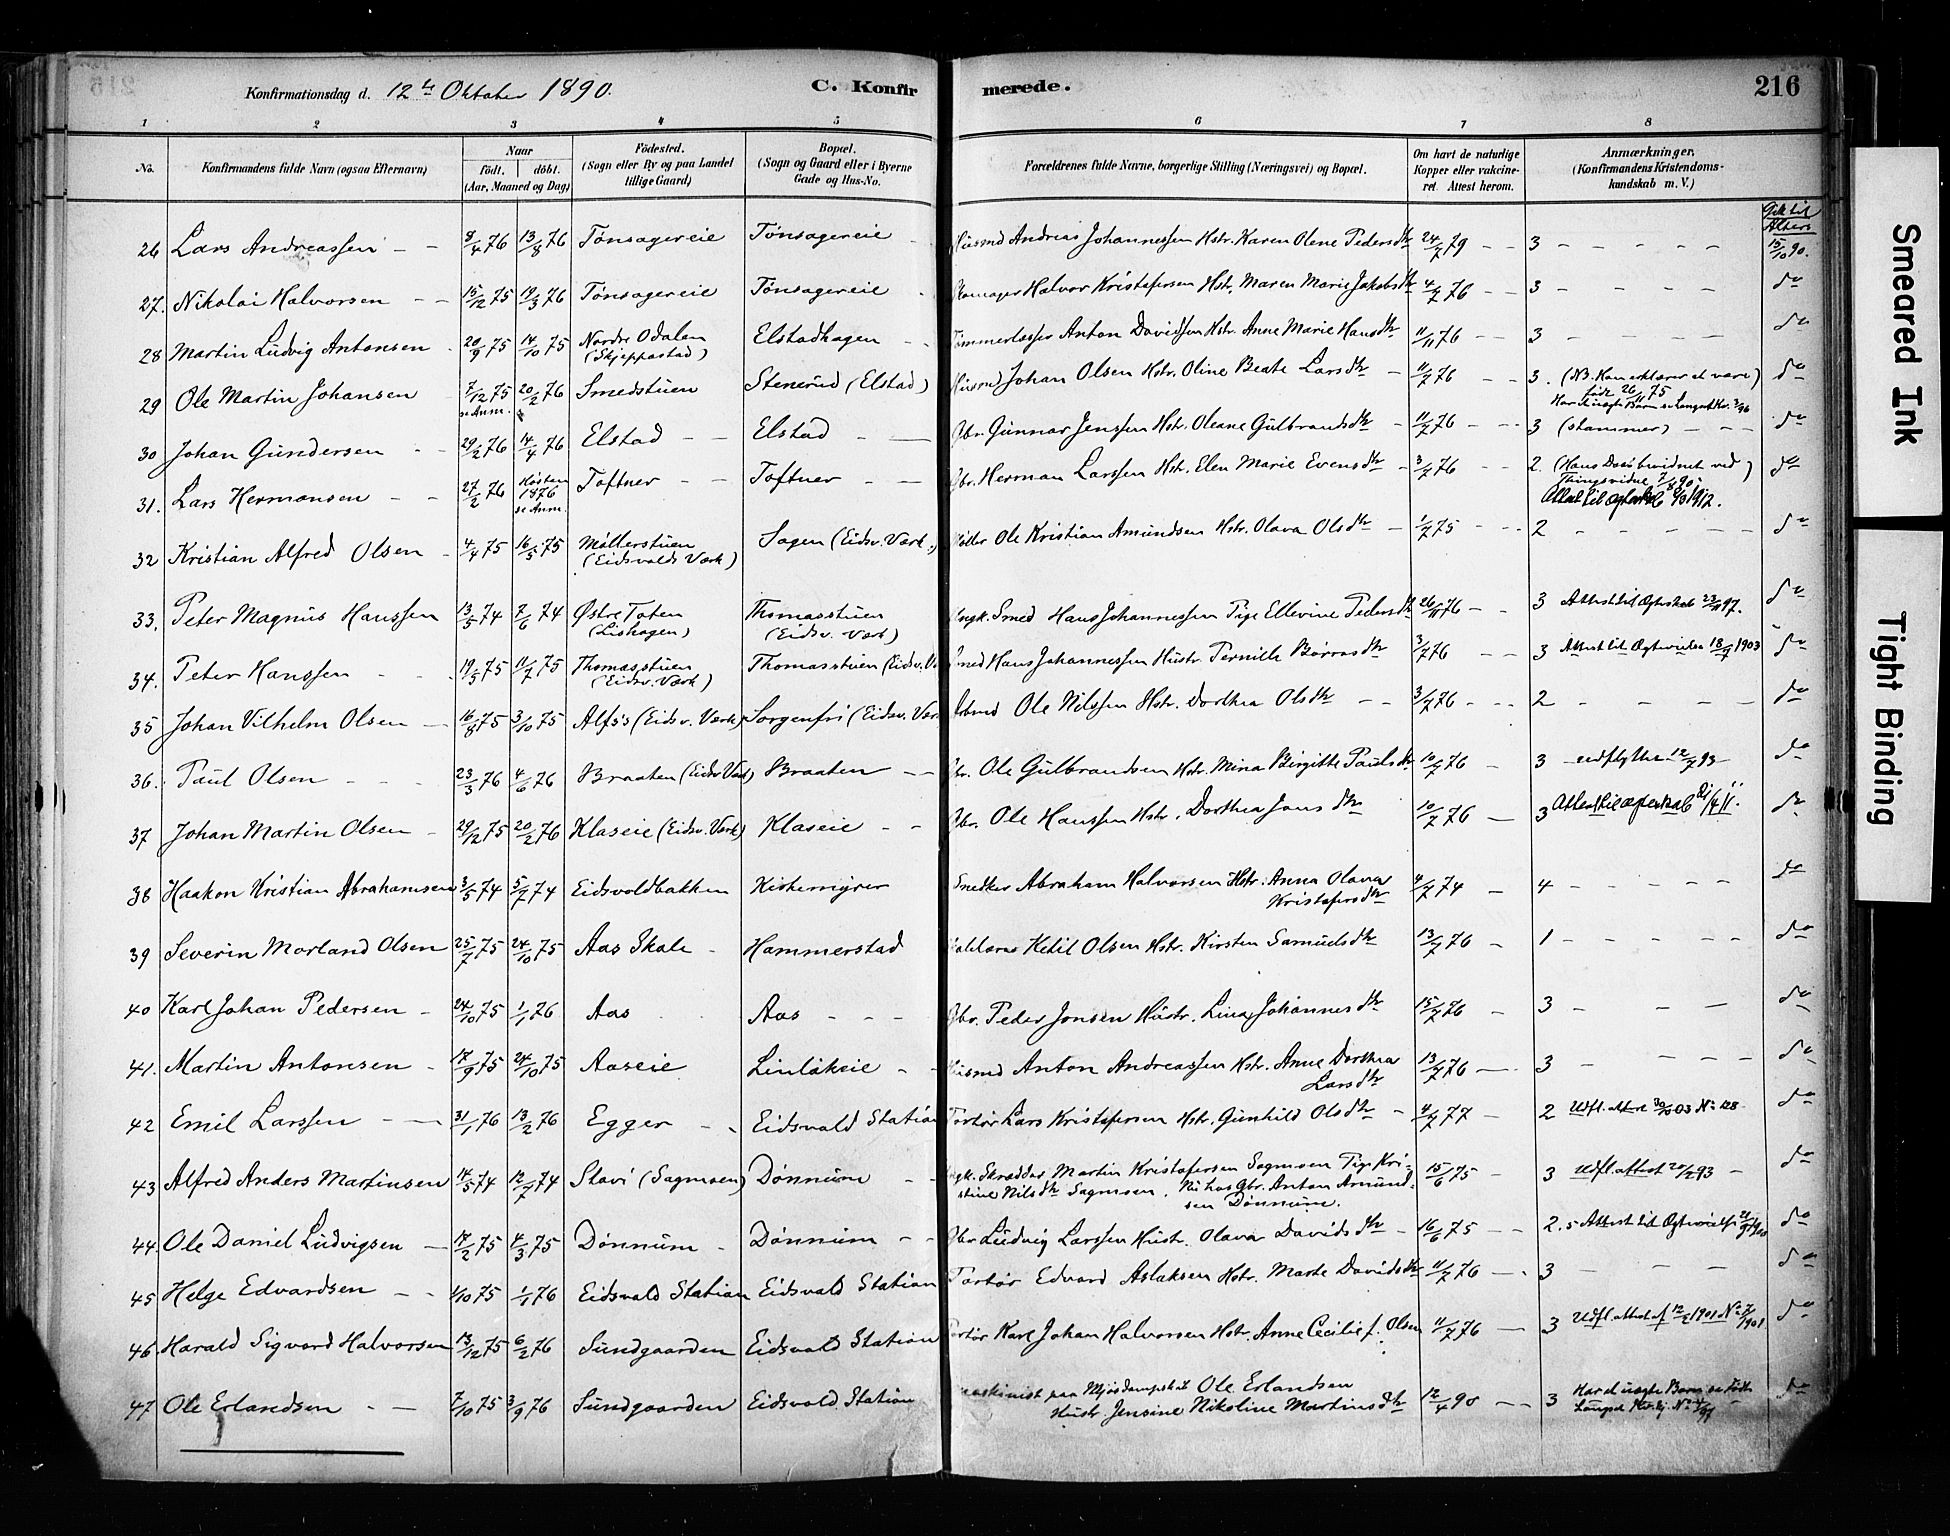 215
Konfirmationsdag d. 12te Oktober 1890.
C. Konfir
merede.
216
1 2 3 4 5 6 7 8
No.
Konfirmandens fulde Navn (ogsaa Efternavn)
Naar
födt. döbt.
(Aar, Maaned og Dag)
Födested.
(Sogn eller By og paa Landet
tillige Gaard)
Bopæl.
(Sogn og Gaard eller i Byerne
Gade og Hus-No.
Forældrenes fulde Navne, borgerlige Stilling (Næringsvei) og Bopæl.
Om havt de naturlige
Kopper eller vakcine-
ret. Attest herom.
Anmærkninger.
(Konfirmandens Kristendoms-
kundskab m. V.)
Gik til
Alters
26 Lars Andreassen 8/4 76 13/8 76 Tønsagereie Tønsagereie Husmd Andreas Johannessen Hstr. Karen Olene Pedersdtr 24/7 79 3 15/10 90.
27. Nikolai Halvorsen 15/12 75 19/3 76 Tønsagereie Tønsagereie Halvor Kristofersen Hstr. Maren Marie Jakobsdtr 4/7 76 3 do
28 Martin Ludvig Antonsen 20/9 75 14/10 75 Nordre Odalen Elstadhagen Anton Davidsen Hstr. Anne Marie Hansdtr 11/11 76 3 do
(Skjeppastad)
29 Ole Martin Johansen 7/12 75 20/2 76 Smedstuen Stenerud (Elstad) Husmd Johan Olsen Hstr. Oline Beate Larsdtr 11/7 76 3. (NB. Han erklærer at være) do
se Anm. født 26/11 75
30 Johan Gundersen 29/2 76 14/4 76 Elstad Elstad Gbr. Gunnar Jenssen Hstr. Oleane Gulbrandsdtr 11/7 76 3 (stammer) do
31. Lars Hermansen 27/2 76 Høsten 1876 Toftner Toftner Gbr. Herman Larssen Hstr. Elen Marie Evensdtr 3/7 76 2. (Hans Daab bevidnet ved) do
se Anm. Thingsvidne 7/8 90.
32 Kristian Alfred Olsen 4/4 75 16/5 75 Møllerstuen Sagen (Eidsv. Værk.) Møller Ole Kristian Amundsen Hstr. Olava Olsdtr 1/7 75 2 do
(Eidsvolds Værk)
33. Peter Magnus Hanssen 13/5 74 7/6 74 Østre Toten Thomasstuen Ungk. Smed Hans Johannessen Pige Ellevine Pedersdtr 26/11 76 3 do
(Lishagen) (Eidsv. Værk)
34. Peter Hanssen 19/5 75 11/7 75 Thomasstuen Thomasstuen (Eidsv. Væ Smed Hans Johannessen Hustr. Pernille Børresdtr 3/7 76 3 do
(Eidsv. Værk)
35 Johan Vilhelm Olsen 16/8 75 3/10 75 Alfs's (Eidsv. Værk) Sorgenfri (Eidsv. Vær Ole Nilssen Hstr. Dorthea Olsdtr 3/7 76 2 do
36. Paul Olsen 23/3 76 4/6 76 Braaten (Eidsv Værk) Braaten Gbr. Ole Gulbrandsen Hstr. Mina Birgitte Paulsdtr 10/7 76 3 udflyttet 12/7 93 do
37 Johan Martin Olsen 29/12 75 20/2 76 Klaseie (Eidsv. Værk) Klaseie Gbr. Ole Hanssen Hstr. Dorthea Jonsdtr 10/7 76 3 do
38 Haakon Kristian Abrahamsen 3/5 74 5/7 74 Eidsvoldbakken Kirkemyrer Snedker Abraham Halvorsen Hstr. Anna Olava 4/7 74 4 do
Kristofersdtr
39 Severin Morland Olsen 25/7 75 24/10 75 Aas Skole Hammerstad Ketil Olsen Hstr. Kirsten Samuelsdtr 13/7 76 1 do
40 Karl Johan Pedersen 24/10 75 1/1 76 Aas Aas Gbr. Peder Jonsen Hustr. Lina Johannesdtr 15/7 76 3 do
41. Martin Antonsen 17/9 75 24/10 75 Aaseie Linlökeie Husmd Anton Andreassen Hstr. Anne Dorthea 13/7 76 3 do
Larsdtr
42 Emil Larssen 31/1 76 13/2 76 Egger Eidsvold Station Lars Kristofersen Hstr. Gunhild Olsdtr 4/7 77 2 Udfl. attest 30/5 03 No 128 do
43 Alfred Anders Martinsen 14/5 74 12/7 74 Stavi (Sagmoen) Dønnum Ungk. Skrædder Martin Kristofersen Sagmoen Pige Kri- 15/6 75 3 Udfl. attest 20/2 93 do
stine Nilsdtr Sagmoen. Nu hos Gbr. Anton Amund-
sen Dønnum.
44. Ole Daniel Ludvigsen 17/2 75 4/3 75 Dønnum Dønnum Gbr Ludvig Larssen Hustr. Olava Davidsdtr 16/6 75 2.5 do
45 Helge Edvardsen 1/10 75 1/1 76 Eidsvold Station Eidsvold Station Edvard Aslaksen Hstr. Marte Davidsdtr 11/7 76 3 do
46 Harald Sigvard Halvorsen 13/12 75 6/2 76 Sundgaarden Eidsvold Station Karl Johan Halvorsen Hstr. Anne Cecilie f. Olsen 11/7 76 3 do
47 Ole Erlandsen 7/10 75 3/9 76 Sundgaarden Eidsvold Station Maskinist paa Mjøsdampskib Ole Erlandsen 12/4 90 3 Har et uægte Barn se Fødte do
Hustr. Jensine Nikoline Martinsdtr
Smeared Ink
Tight Binding